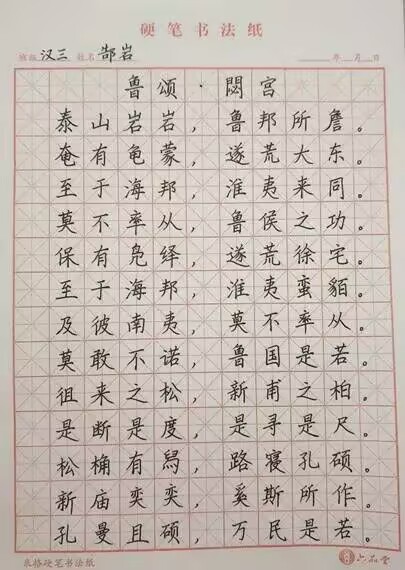 硬笔书法纸
班级 汉三 姓名 郜岩 年 月 日
鲁颂·閟宫
泰山岩岩，鲁邦所詹。
奄有龟蒙，遂荒大东。
至于海邦，淮夷来同。
莫不率从，鲁侯之功。
保有凫绎，遂荒徐宅。
至于海邦，淮夷蛮貊。
及彼南夷，莫不率从。
莫敢不诺，鲁国是若。
徂来之松，新甫之柏。
是断是度，是寻是尺。
松桷有舄，路寝孔硕。
新庙奕奕，奚斯所作。
孔曼且硕，万民是若。
米格硬笔书法纸 六品堂